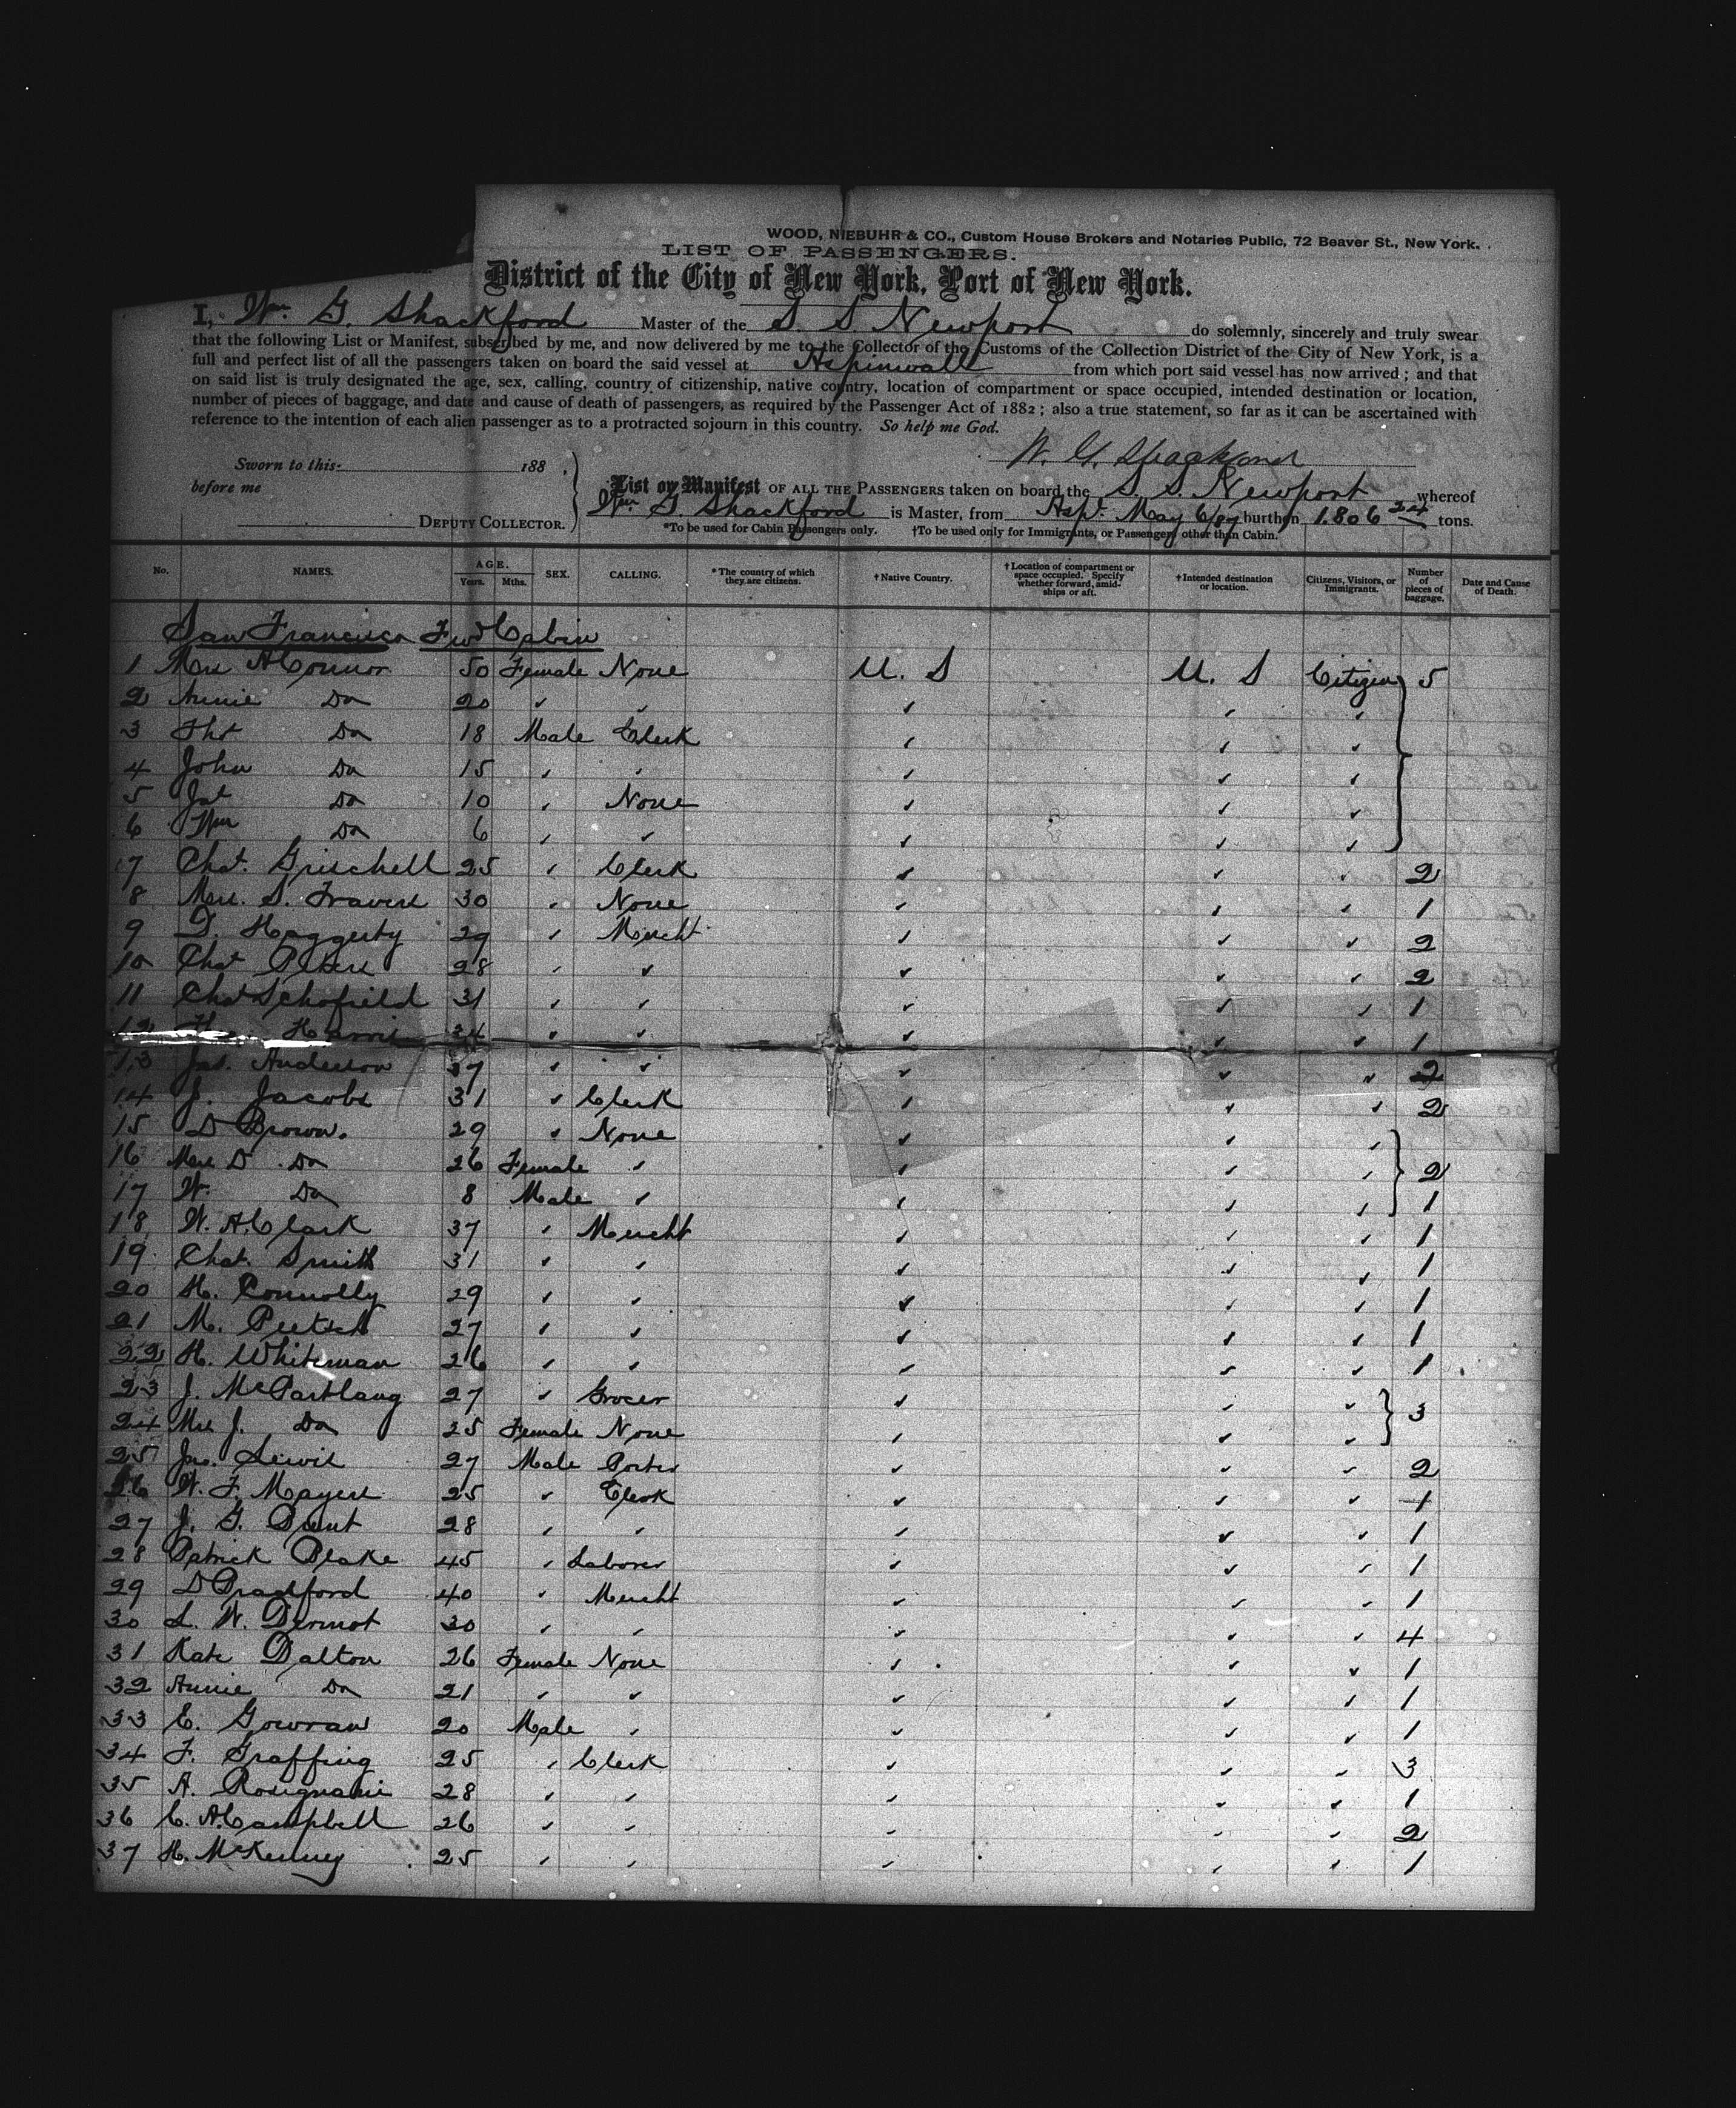 WOOD, NIEBUHR & CO., Custom House Brokers and Notaries Public, 72 Beaver St., New York.
LIST OF PASSENGERS.
District of the City of New York, Port of New York.
I, Wm. G. Shackford Master of the S. S. Newport do solemnly, sincerely and truly swear
that the following List or Manifest, subscribed by me, and now delivered by me to the Collector of the Customs of the Collection District of the City of New York, is a
full and perfect list of all the passengers taken on board the said vessel at Aspinwall from which port said vessel has now arrived; and that
on said list is truly designated the age, sex, calling, country of citizenship, native country, location of compartment or space occupied, intended destination or location,
number of pieces of baggage, and date and cause of death of passengers, as required by the Passenger Act of 1882; also a true statement, so far as it can be ascertained with
reference to the intention of each alien passenger as to a protracted sojourn in this country. So help me God.
W. G. Shackford
Sworn to this 188 .
before me
DEPUTY COLLECTOR.
List or Manifest OF ALL THE PASSENGERS taken on board the S. S. Newport whereof
Wm. G. Shackford is Master, from Asp. May 6/87 burthen 1.806 24 tons.
*To be used for Cabin Passengers only. †To be used only for Immigrants, or Passengers other than Cabin.
No. NAMES. AGE. Years. Mths. SEX. CALLING. *The country of which they are citizens. †Native Country. †Location of compartment or space occupied. Specify whether forward, amidships or aft. †Intended destination or location. Citizens, Visitors, or Immigrants. Number of pieces of baggage. Date and Cause of Death.
San Francisco Fwd Cabin
1 Mrs A Connor 50 Female None U. S U. S Citizen 5
2 Annie Do 20 " "
3 Do 18 Male Clerk
4 John Do 15 " "
5 Do 10 " None
6 Wm Do 6 " "
7 Chas. Grischell 25 " Clerk 2
8 Mrs. S. Travers 30 " None 1
9 D. Haggerty 29 " Mercht 2
10 Chas Peters 28 " " 2
11 Chas Schofield 31 " " 1
12 Harris 24 " " 1
13 Jas. Anderson 37 " " 2
14 J. Jacobs 31 " Clerk 2
15 D Brown. 29 " None
16 Mrs D. Do 26 Female " 2
17 W. Do 8 Male " 1
18 W. A. Clark 37 " Mercht 1
19 Chas. Smith 31 " " 1
20 H. Connolly 29 " " 1
21 M. 27 " " 1
22 H. Whiteman 26 " " 1
23 J. McPartlang 27 " Grocer 3
24 Mrs J. Do 25 Female None
25 Jno. Lewis 27 Male Porter 2
26 W. F. Mayers 25 " Clerk 1
27 J. G. 28 " " 1
28 Patrick Blake 45 " Laborer 1
29 D Bradford 40 " Mercht 1
30 L. W. Dermot 30 " " 4
31 Kate Dalton 26 Female None 1
32 Annie Do 21 " " 1
33 E. Gowran 20 Male " 1
34 F. Graffing 25 " Clerk 3
35 A. Rosignani 28 " " 1
36 C. A. Campbell 26 " " 2
37 H. McKenney 25 " " 1